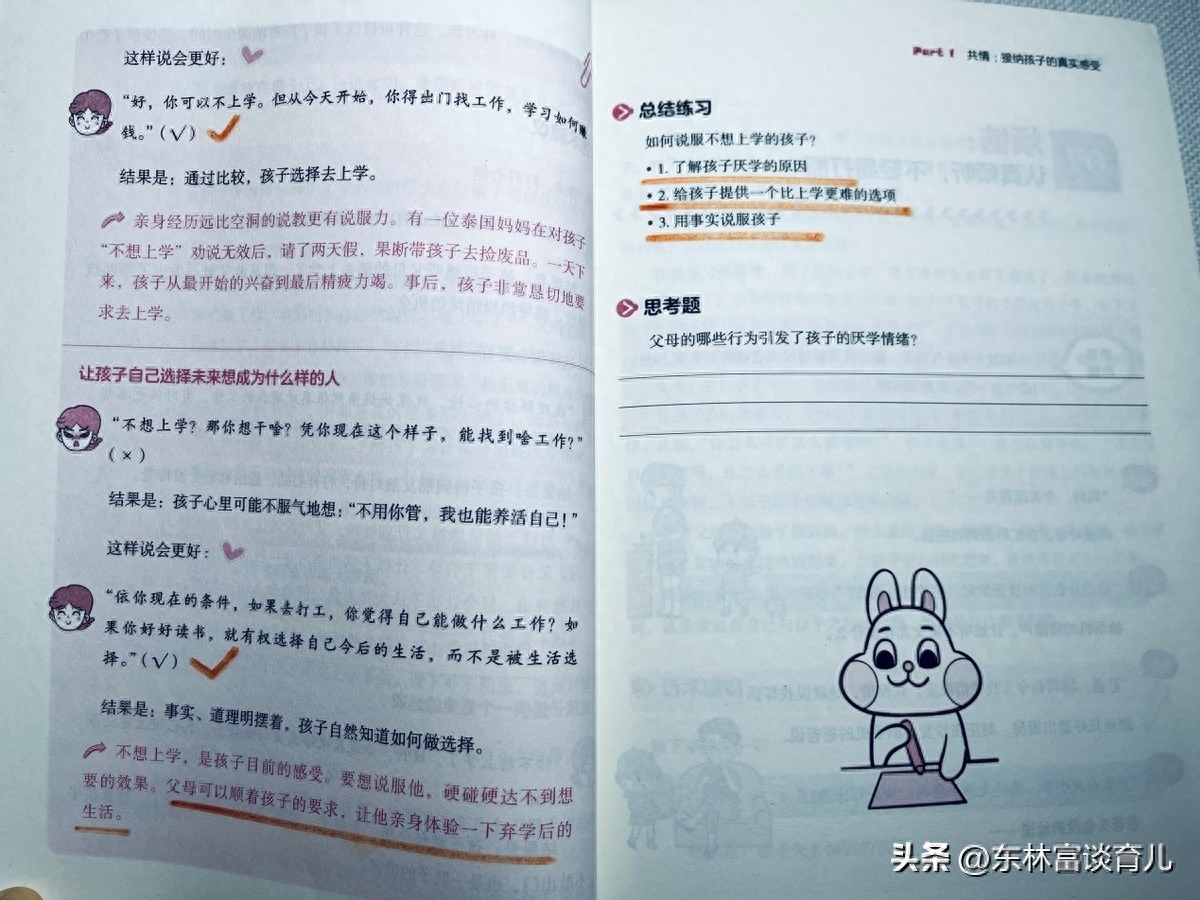 这样说会更好：
“好，你可以不上学。但从今天开始，你得出门找工作，学习如何赚
钱。”（√）
结果是：通过比较，孩子选择去上学。
亲身经历远比空洞的说教更有说服力。有一位泰国妈妈在对孩子
“不想上学”劝说无效后，请了两天假，果断带孩子去捡废品。一天下
来，孩子从最开始的兴奋到最后精疲力竭。事后，孩子非常恳切地要
求去上学。
让孩子自己选择未来想成为什么样的人
“不想上学？那你想干啥？凭你现在这个样子，能找到啥工作？”
（×）
结果是：孩子心里可能不服气地想：“不用你管，我也能养活自己！”
这样说会更好：
“依你现在的条件，如果去打工，你觉得自己能做什么工作？如
果你好好读书，就有权选择自己今后的生活，而不是被生活选
择。”（√）
结果是：事实、道理明摆着，孩子自然知道如何做选择。
不想上学，是孩子目前的感受。要想说服他，硬碰硬达不到想
要的效果。父母可以顺着孩子的要求，让他亲身体验一下弃学后的
生活。
Part 1 共情：接纳孩子的真实感受
总结练习
如何说服不想上学的孩子？
• 1. 了解孩子厌学的原因
• 2. 给孩子提供一个比上学更难的选项
• 3. 用事实说服孩子
思考题
父母的哪些行为引发了孩子的厌学情绪？
头条 @东林富谈育儿